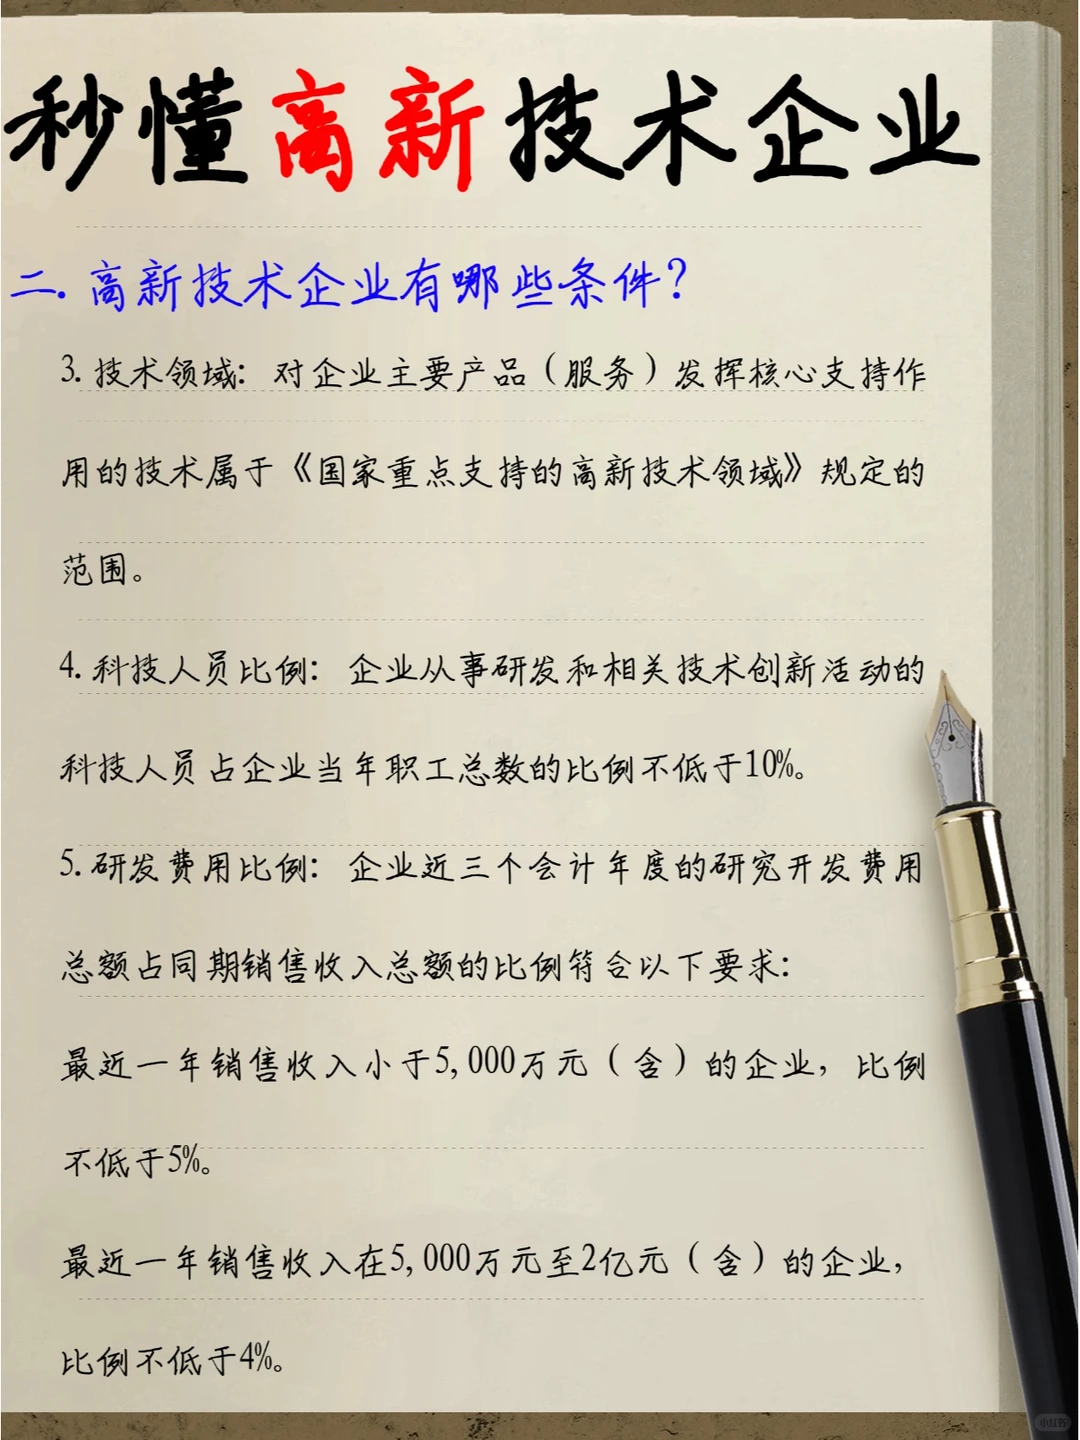 秒懂高新技术企业
二. 高新技术企业有哪些条件?
3. 技术领域: 对企业主要产品（服务）发挥核心支持作
用的技术属于《国家重点支持的高新技术领域》规定的
范围。
4. 科技人员比例: 企业从事研发和相关技术创新活动的
科技人员占企业当年职工总数的比例不低于10%。
5. 研发费用比例: 企业近三个会计年度的研究开发费用
总额占同期销售收入总额的比例符合以下要求:
最近一年销售收入小于5,000万元（含）的企业，比例
不低于5%。
最近一年销售收入在5,000万元至2亿元（含）的企业，
比例不低于4%。
小红书